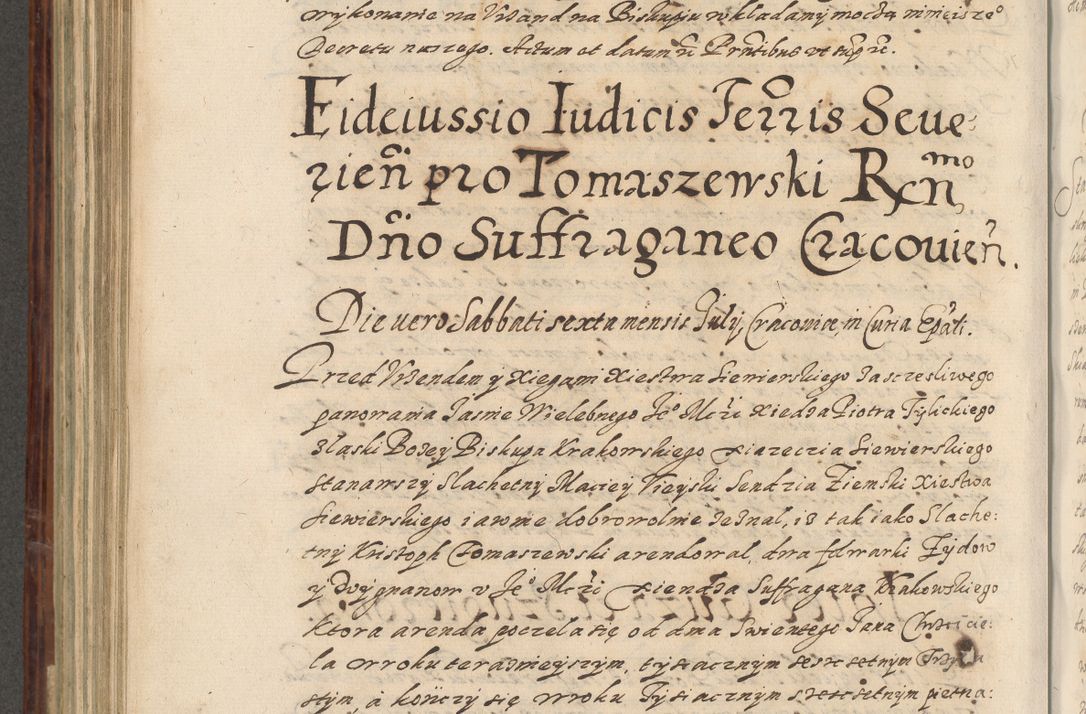 wykonanie na Vrzand na Biskupju wkładamy mocdą ninieisze°
Decretu naszego. Actum et datum ũ Prñtibus vt supr ũ.
Fideiussio Iudicis Terris Seue:
rieñ pro Tomaszewski Rxñmo
Dño Suffraganeo Cracouieñ.
Die uero Sabbati sexta mensis July, Cracouiæ, in Curia Epãti.
Przed Vrzendem y Xiegami Xiestwa Siewierskiego Za szczesliwego
panowania Jasnie Wielebnego Je° Mczi Xiedza Piotra Tylickiego
z laski Bozey Biskupa Krakowskiego Xiazeczia Siewierskiego
stanawszy Slachetny Maciey Pieyski Sendzia Ziemski Xiestwa
Siewierskiego iawnie dobrowolnie zeznal, iz tak iako Slache:
tny Kristoph Tomaszewski arendowal, dwa folwarki Zydow
y Dzygnanow v Je° Mczi Xiendza Suffragana Krakowskiego
Ktora arenda poczela się od dnia Swientego Jana Chrzcicie:
la wroku teraznieyszym, tysiacznym szescsetnym Trzyna
stym, a kończy się wroku Tysiacznym szescsetnym pietna: